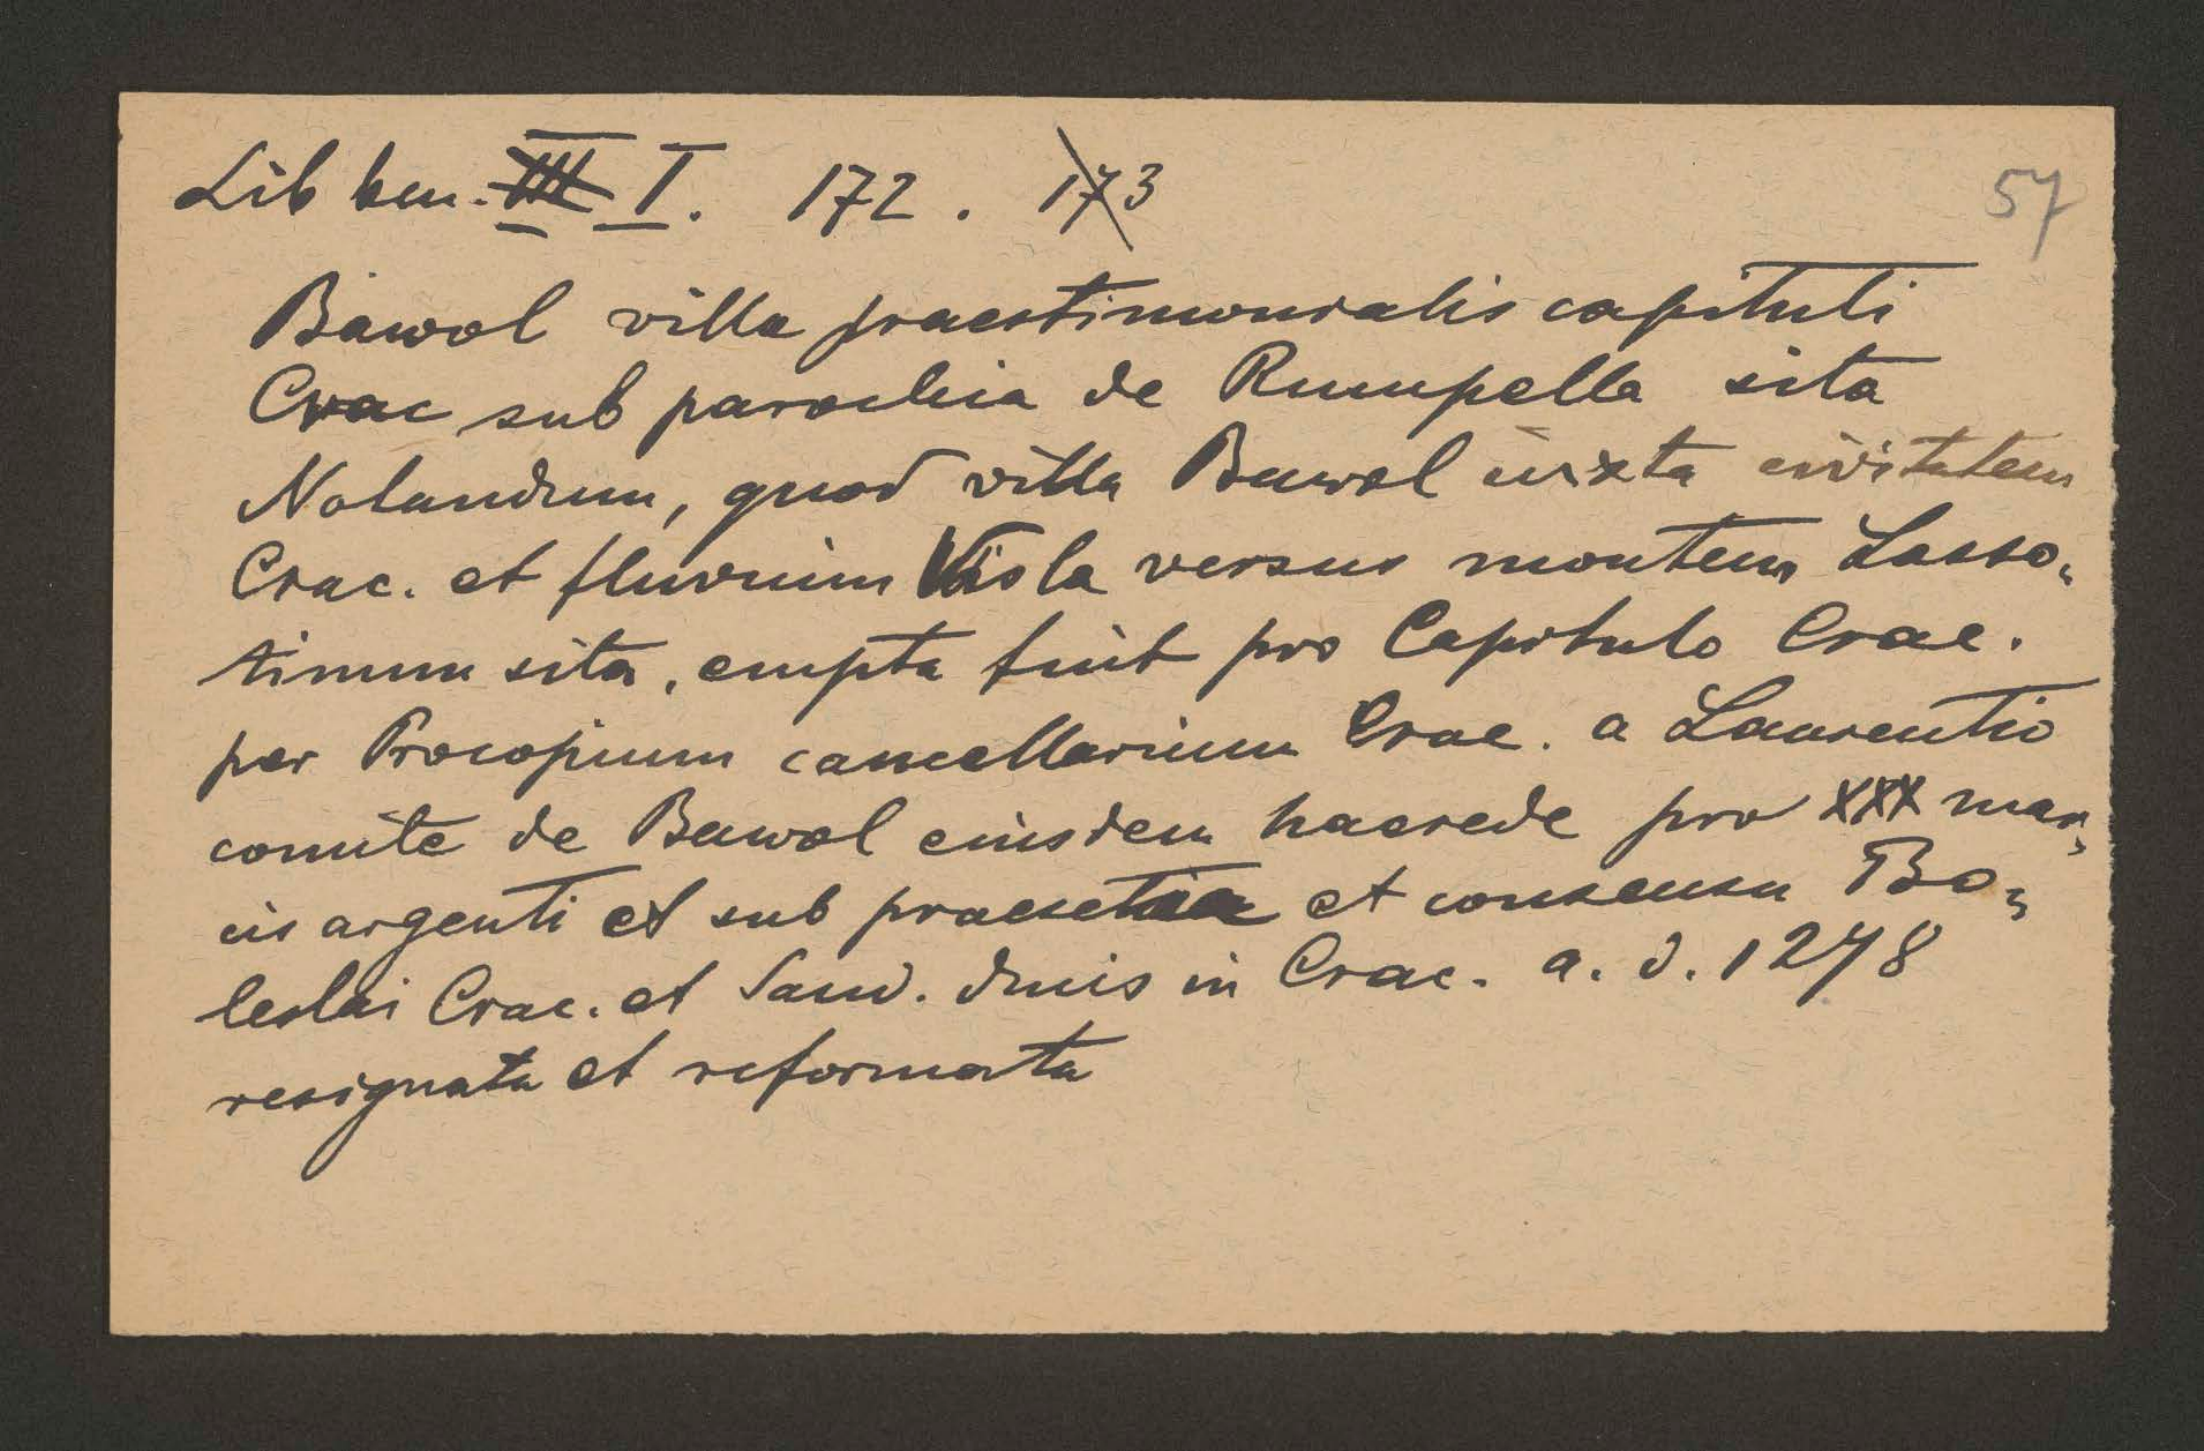 Lib ben. III I. 172. 173
57
Bawol villa praestimonialis capituli
Crac sub parochia de Rumpella sita
Notandum, quod villa Bawol iuxta civitatem
Crac. et fluvium Visla versus montem Lasso-
tinum sita, empta fuit pro Capitulo Crac.
per Procopium cancellarium Crac. a Laurentio
comite de Bawol eiusdem haerede pro XXX mar-
cis argenti et sub et consensu Bo-
leslai Crac. et Sand. ducis in Crac. a. d. 1278
resignata et reformata